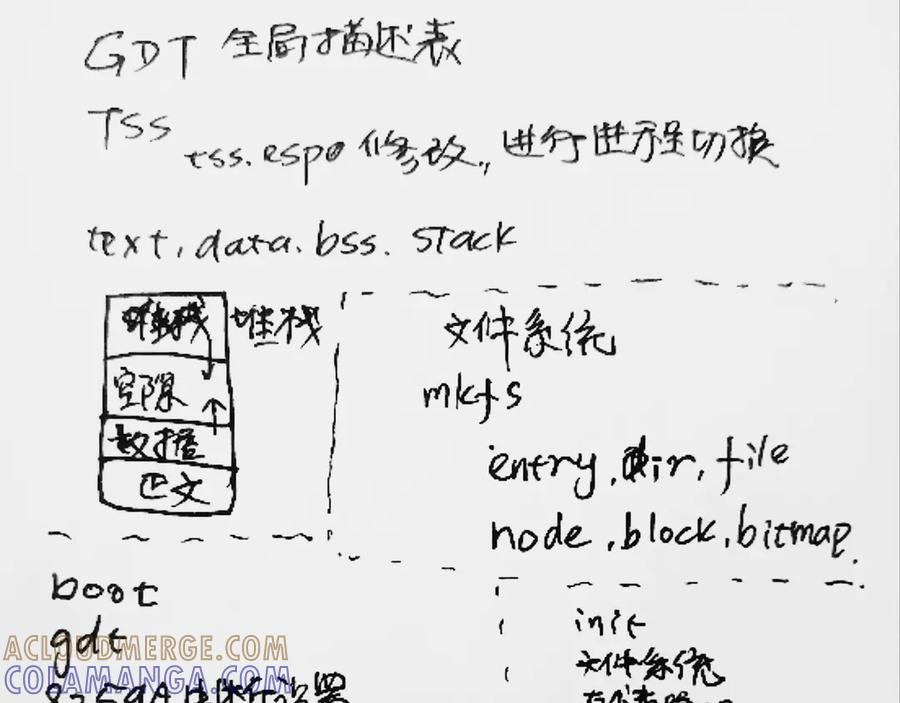 GDT 全局描述表
TSS
tss.esp0 修改,, 进行进程切换
text, data. bss. stack
堆栈 堆栈
空隙
数据
正文
文件系统
mkfs
entry, dir, file
node, block, bitmap.
boot
gdt
init
文件系统
ACLOUDMERGE.COM
COLAMANGA.COM